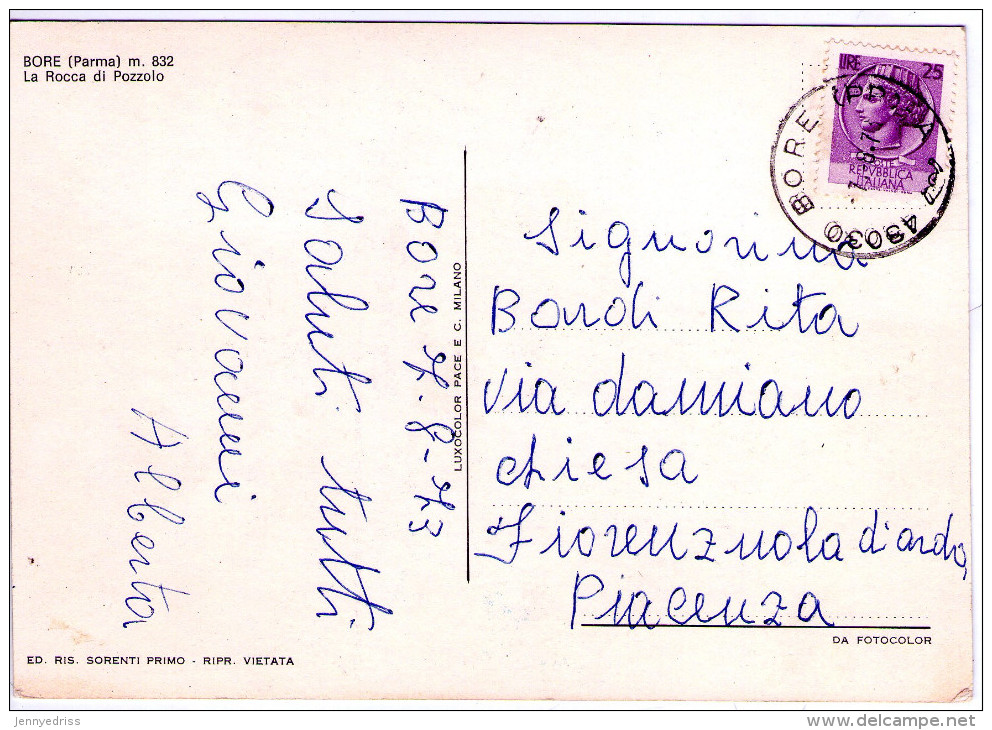 BORE (Parma) m. 832
La Rocca di Pozzolo
LIRE 25
POSTE
REPVBBLICA
ITALIANA
BORE (PARMA)
43030
7.8.7
Bore 7.8-73
Saluti tutti
Giovanni
Alberta
LUXOCOLOR PACE E C. MILANO
Signorina
Bardi Rita
via damiano
chiesa
Fiorenzuola d'arda,
Piacenza
DA FOTOCOLOR
ED. RIS. SORENTI PRIMO - RIPR. VIETATA
jennyedriss
delcampe.net